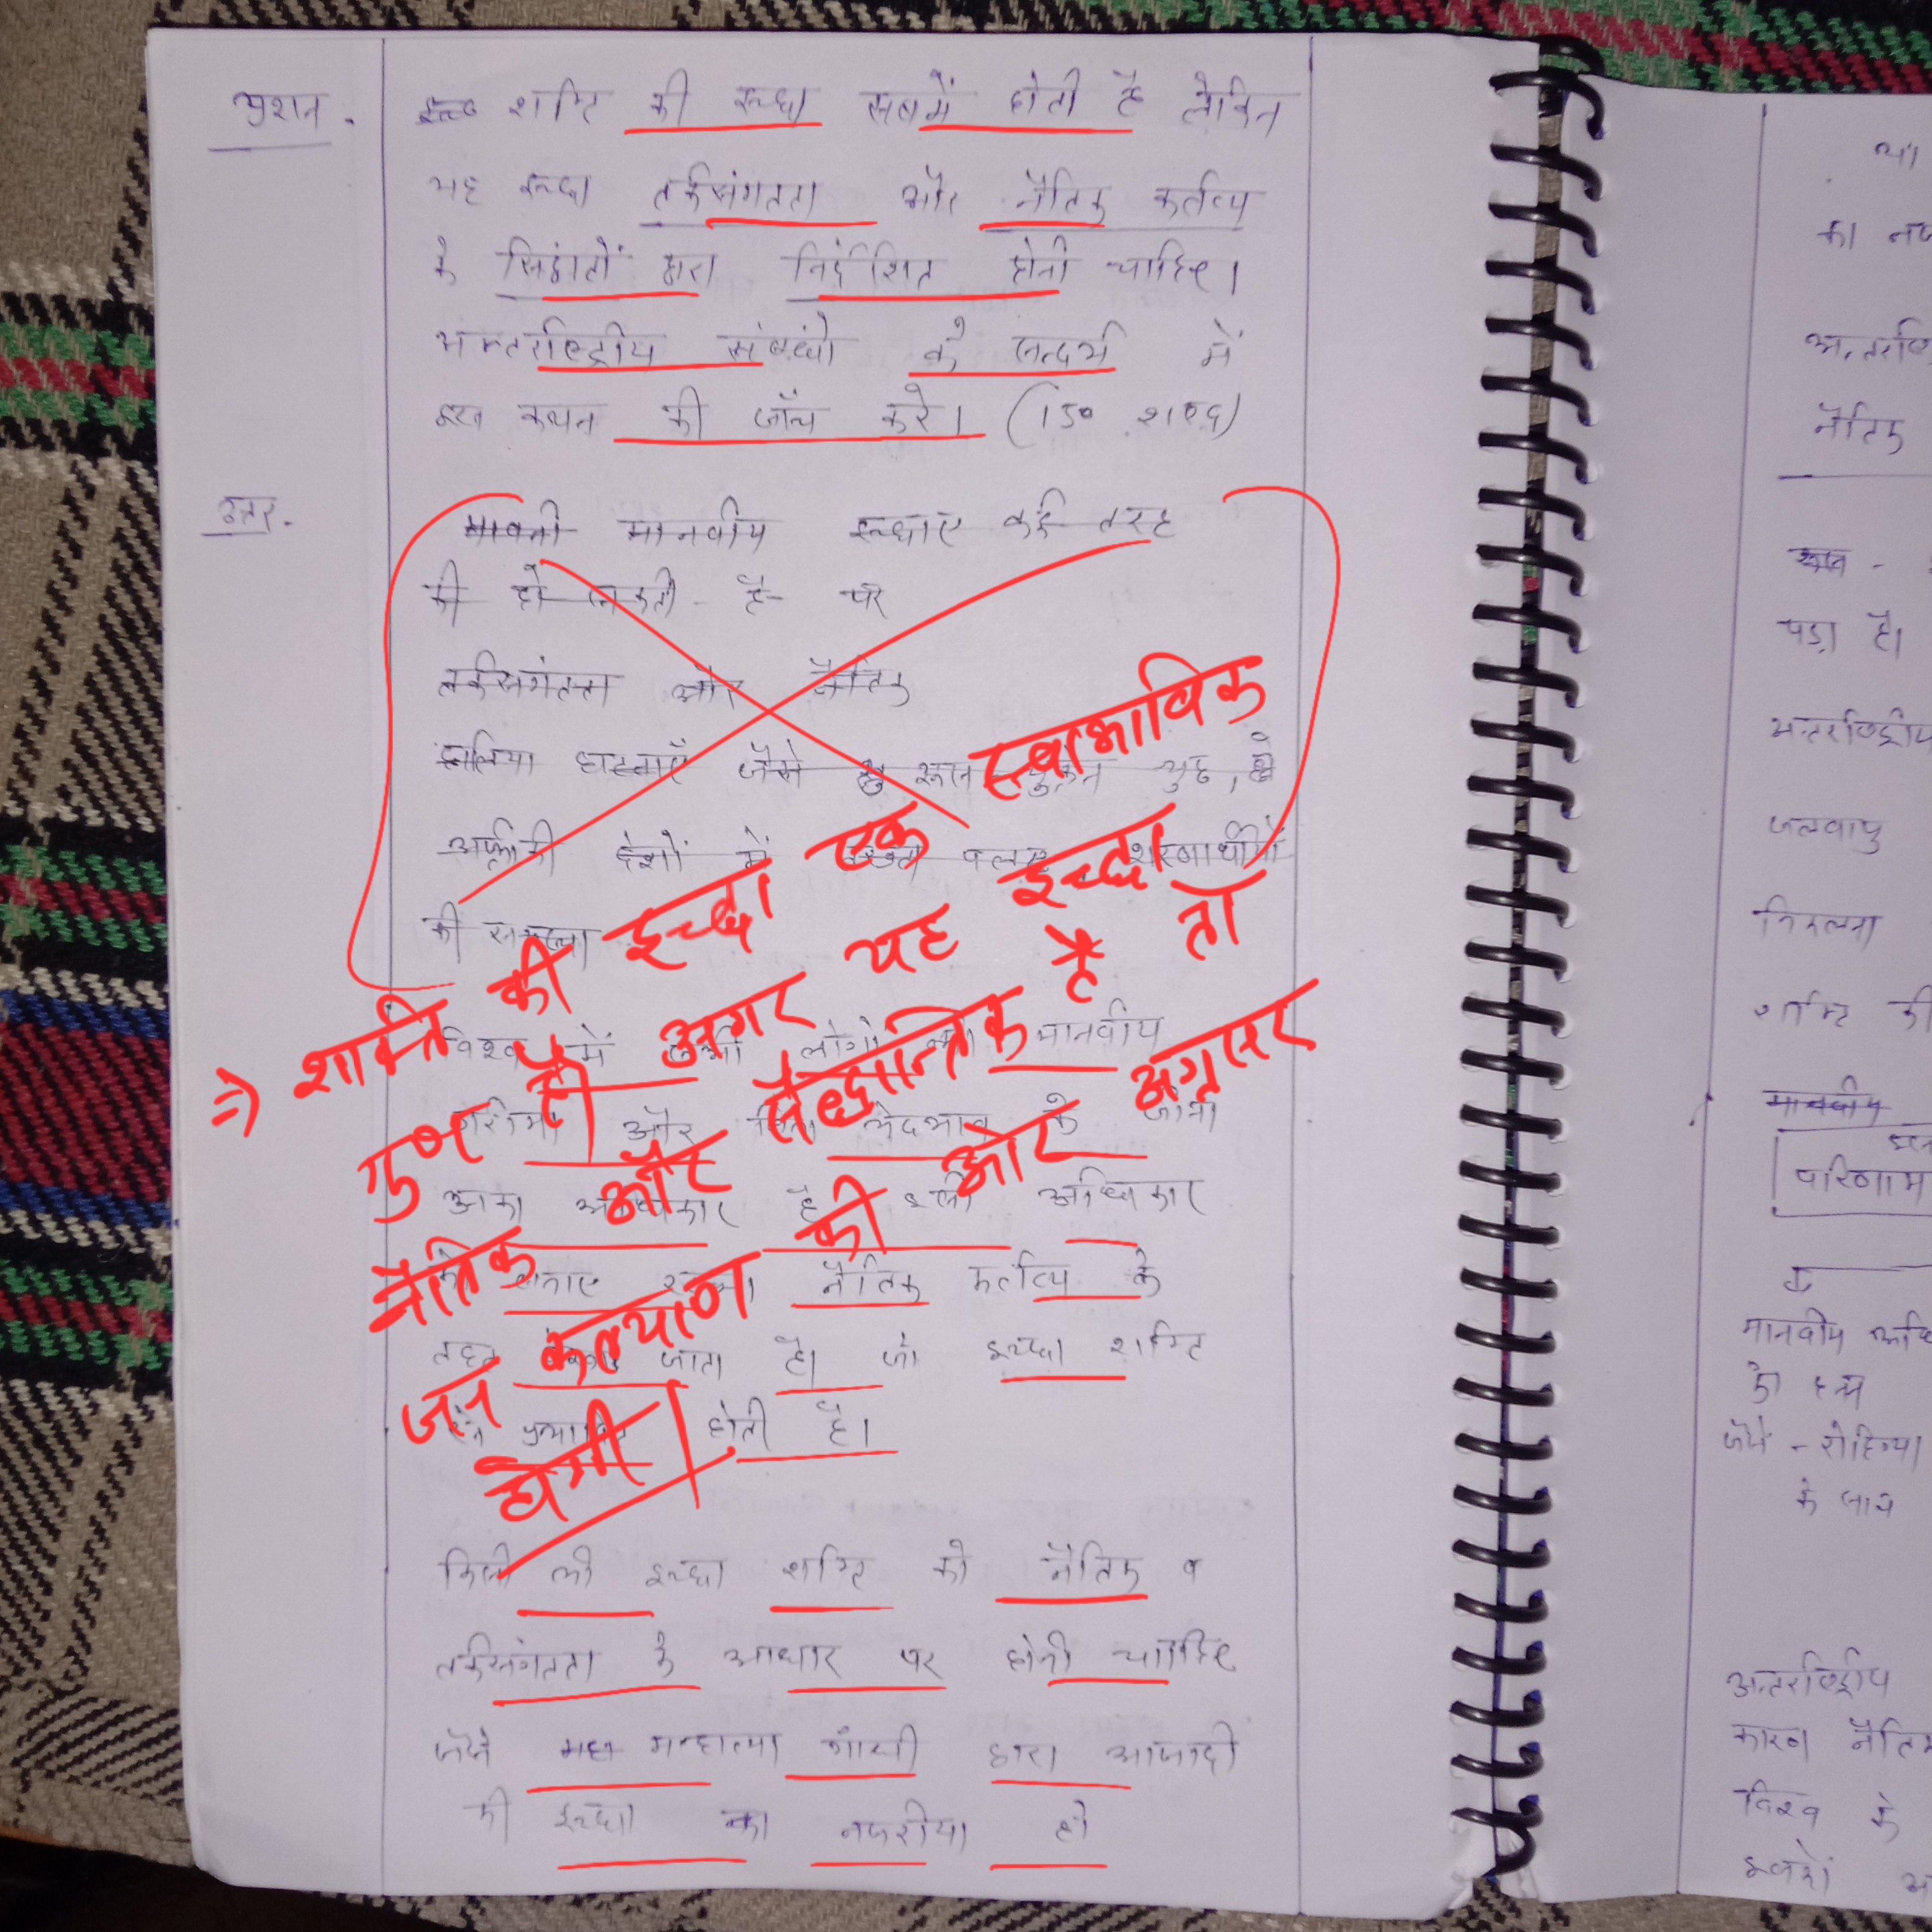 प्रशन. शक्ति की इच्छा सबमें होती है लेकिन
यह इच्छा तर्कसंगतता और नैतिक कर्तव्य
के सिद्धांतों द्वारा निर्देशित होनी चाहिए।
अन्तर्राष्ट्रीय संबंधों के सन्दर्भ में
इस कथन की जाँच करे। (150 शब्द)
उत्तर. मानवीय इच्छाए कई तरह
की हो सकती है पर
तर्कसगंतता और नैतिक
हालिया घटनाएँ जैसे रूस युक्रेन युद्ध,
अफ्रीकी देशों में शरणार्थीयों
की समस्या
⇒ शक्ति की इच्छा एक स्वाभाविक
गुण है। अगर यह इच्छा
नैतिक और सैद्धान्तिक है तो
जन कल्याण की ओर अग्रसर
होगी।
विश्व में लोगो मानवीय
गरिमा और बिना भेदभाव के जीना
उनका अधिकार है इसी अधिकार
को बनाए रखना नैतिक कर्तव्य के
तहत जाता है। जो इच्छा शक्ति
से होती है।
किसी की इच्छा शक्ति को नैतिक व
तर्कसंगतता के आधार पर होनी चाहिए
जैसे महात्मा गाँधी द्वारा आजादी
की इच्छा का नजरीया हो
या
का
अन्तर्राष्ट्रि
नैतिक
पड़ा है।
अन्तर्राष्ट्रीय
जलवायु
निकलना
शक्ति की
मानवीय
परिणाम
मानवीय अधि
जैसे - रोहिंग्या
के साथ
अन्तर्राष्ट्रीय
कारण नैतिक
विश्व के